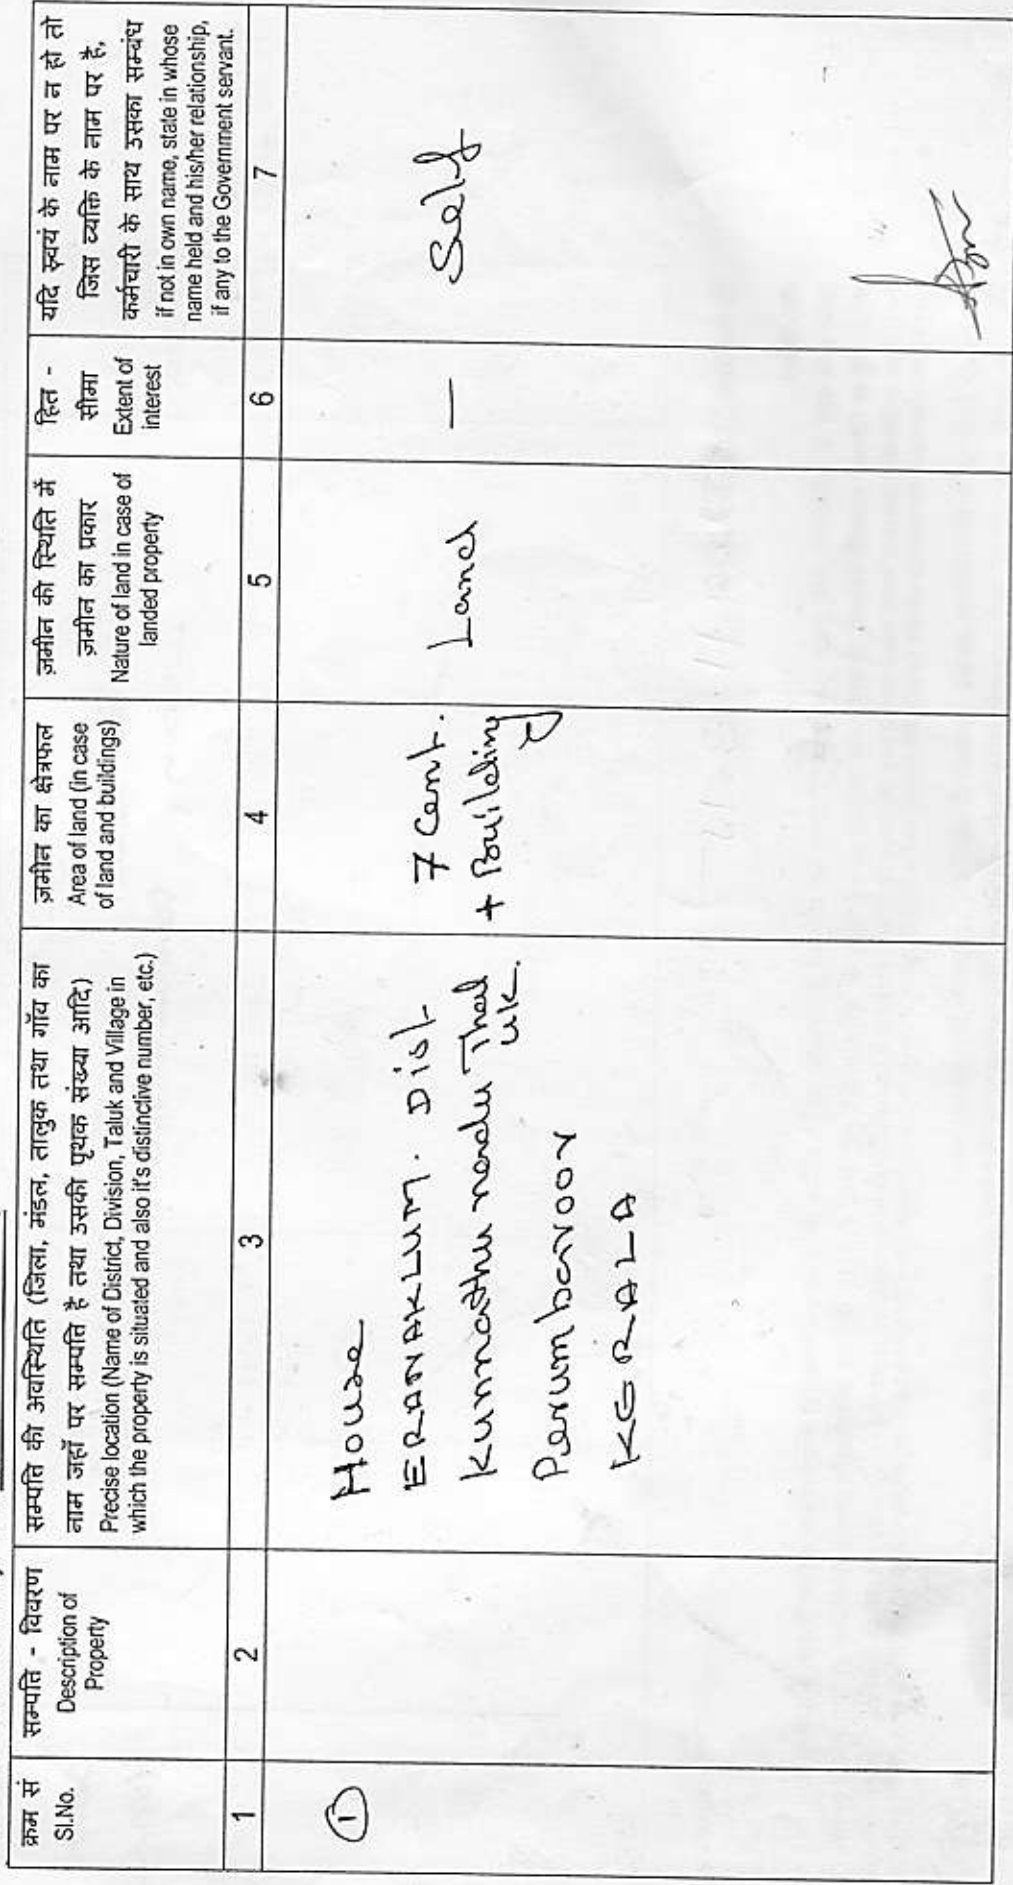 क्रम सं
Sl.No.
सम्पत्ति - विवरण
Description of
Property
सम्पत्ति की अवस्थिति (जिला, मंडल, तालुक तथा गाँव का
नाम जहाँ पर सम्पत्ति है तथा उसकी पृथक संख्या आदि)
Precise location (Name of District, Division, Taluk and Village in
which the property is situated and also it's distinctive number, etc.)
ज़मीन का क्षेत्रफल
Area of land (in case
of land and buildings)
ज़मीन की स्थिति में
ज़मीन का प्रकार
Nature of land in case of
landed property
हित -
सीमा
Extent of
interest
यदि स्वयं के नाम पर न हो तो
जिस व्यक्ति के नाम पर है,
कर्मचारी के साथ उसका सम्बंध
if not in own name, state in whose
name held and his/her relationship,
if any to the Government servant.
1
2
3
4
5
6
7
1
House
ERANAKLUM. Dist
Kunnathu nandu Thal
uk.
Perumbavoor
KERALA
7 Cent.
+ Building
Land
—
Self